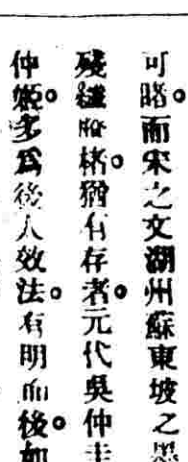 可睹。而宋之文湖州蘇東坡之墨
殘縑敗楮。猶有存者。元代吳仲圭
仲姬。多爲後人效法。有明而後。如